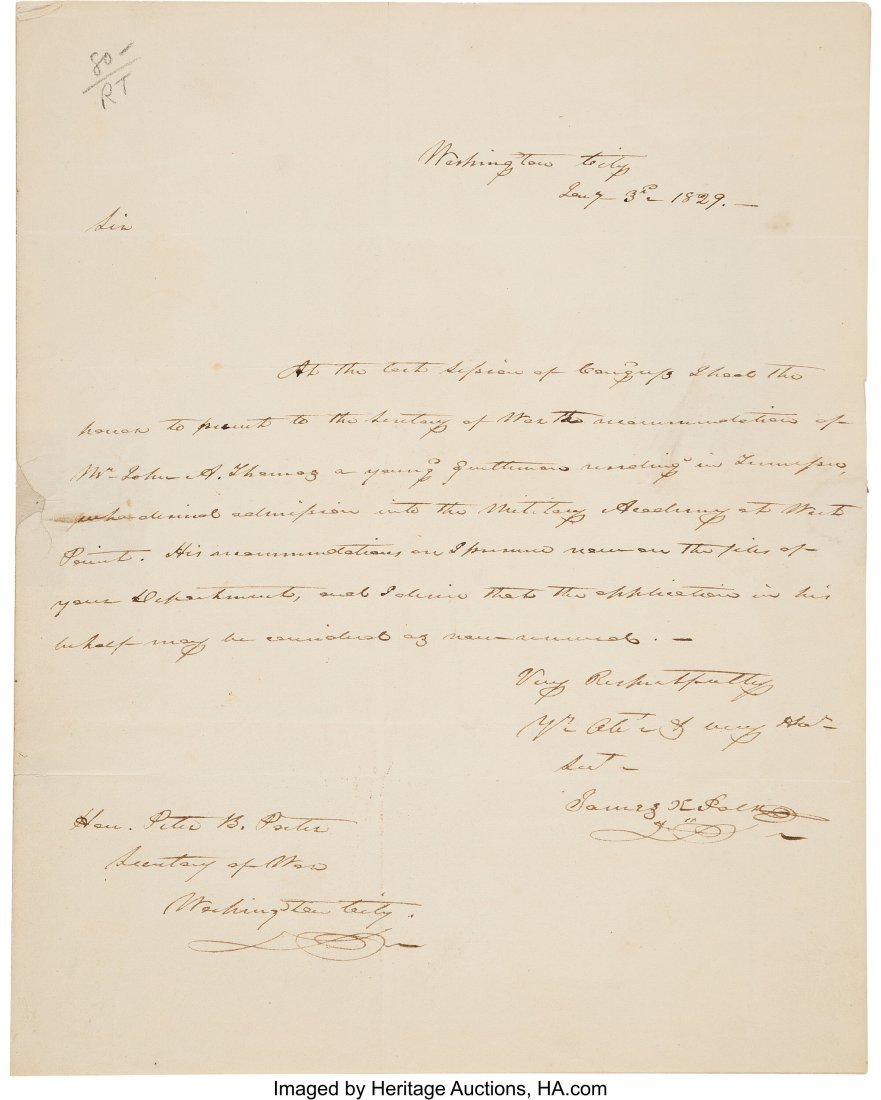 80-
RT
Washington City
Jany 3rd 1829. —
Sir
At the last Session of Congress I had the
honor to present to the Secretary of War the recommendation of
Mr. John A. Thomas a young gentleman residing in Tennessee,
who desired admission into the Military Academy at West
Point. His recommendations are I presume now on the files of
your Department, and I desire that the application in his
behalf may be considered as now renewed. —
Very Respectfully
Yr. Obt. & very Hu.
Sert. —
James K Polk
Hon. Peter B. Porter
Secretary of War
Washington City.
Imaged by Heritage Auctions, HA.com